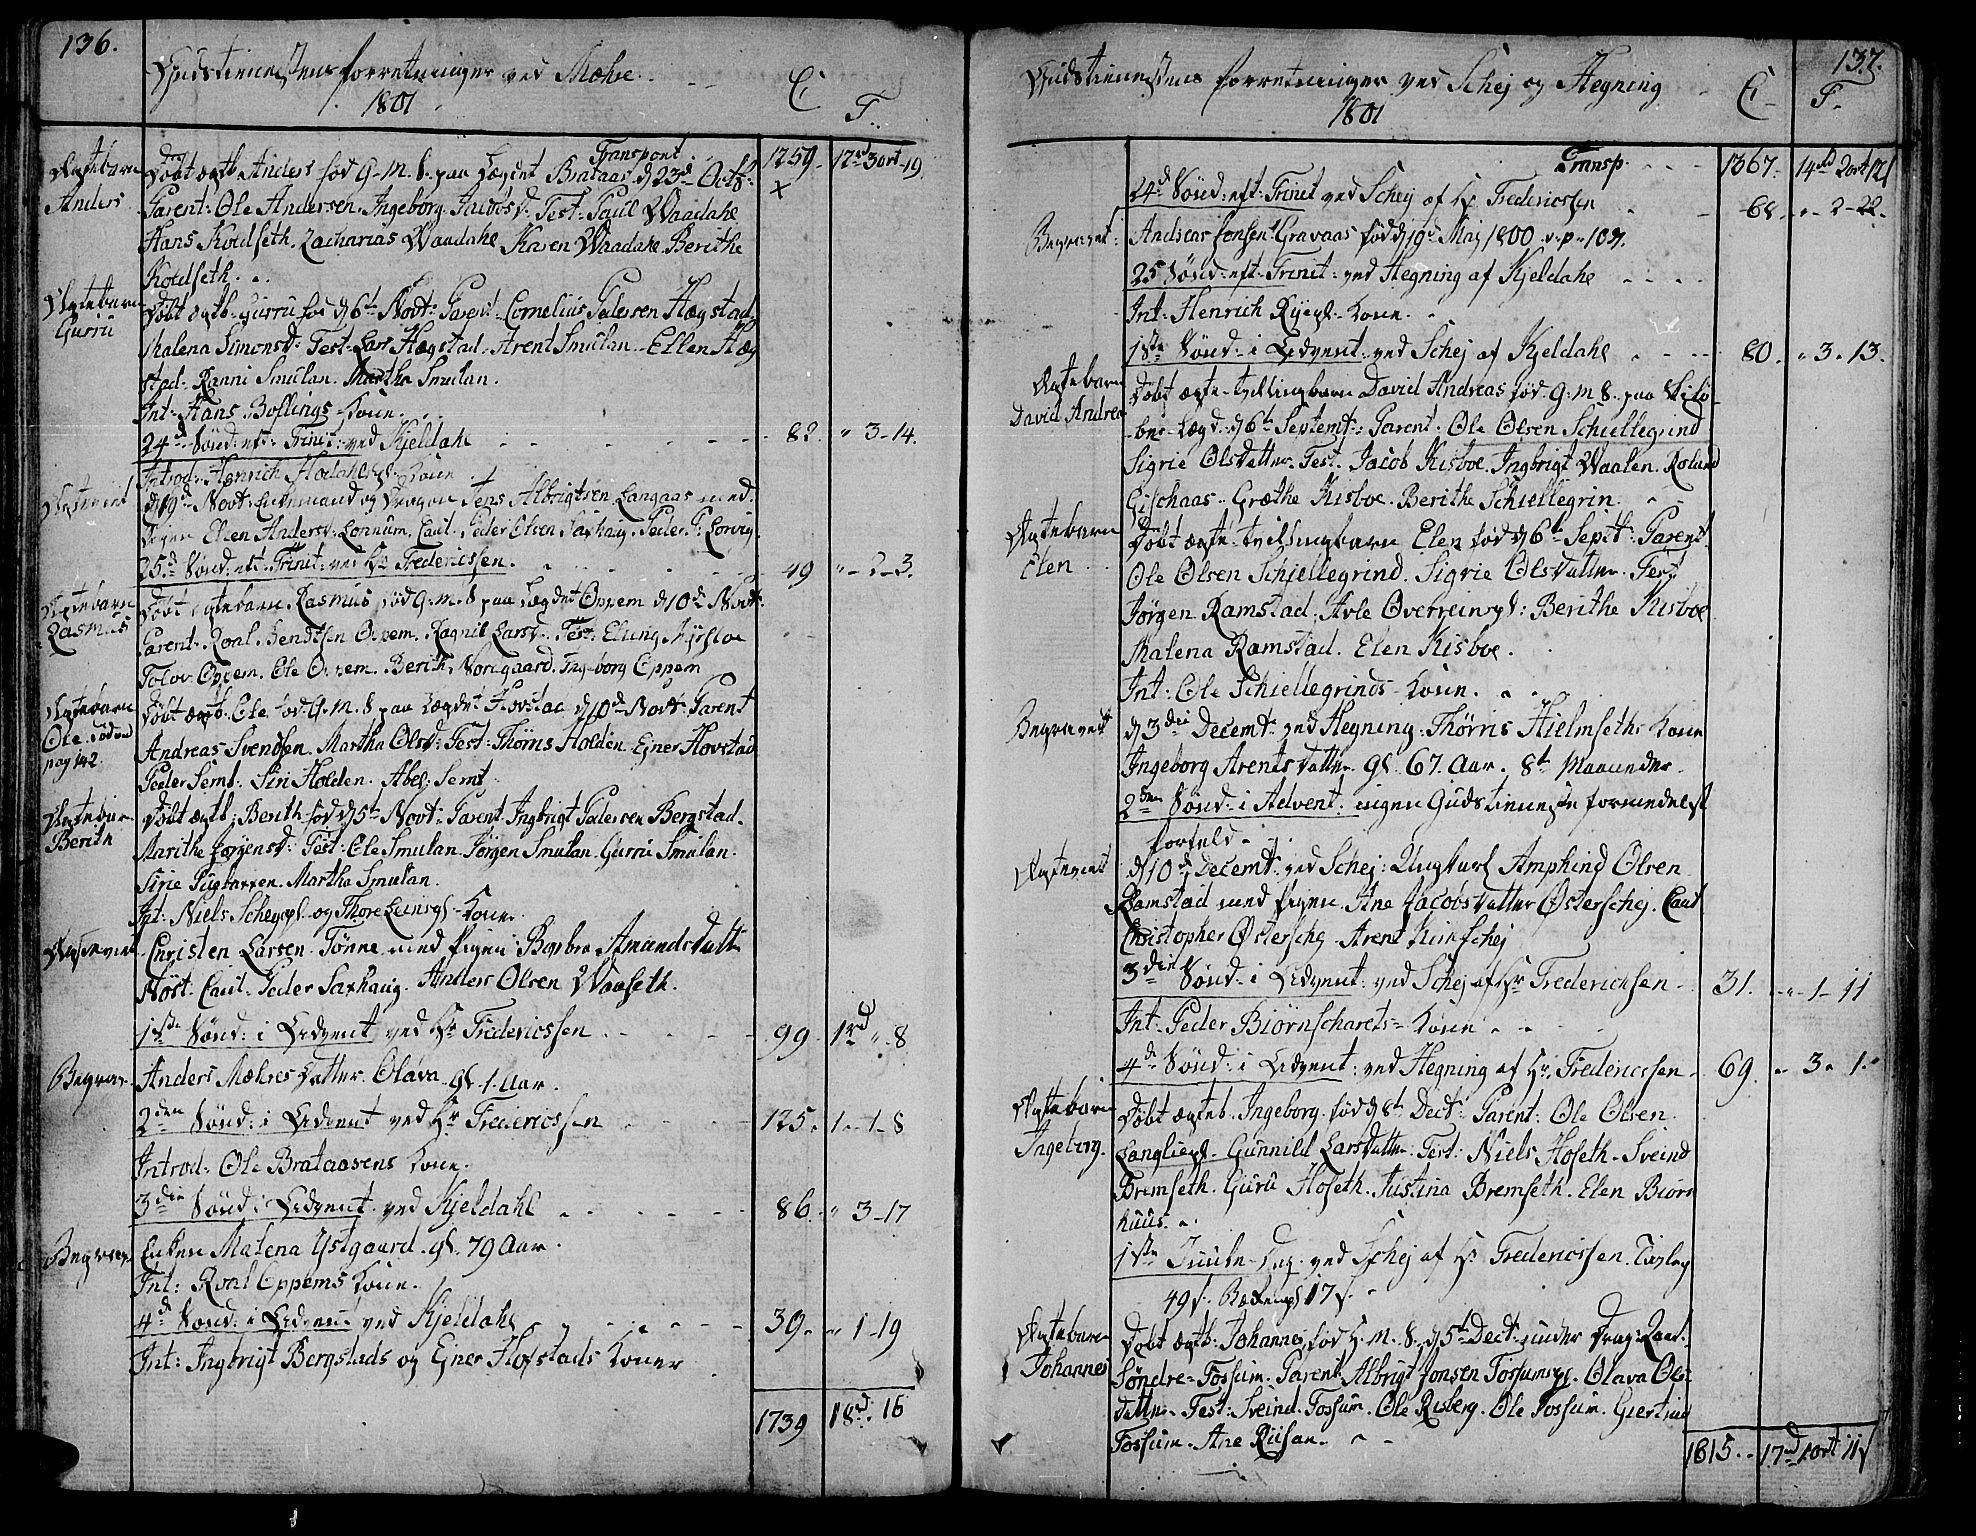 136.
Gudstienestens forretninger ved Mæhre
1801
C. F.
Transport 1259. 17rd 3 ort 19.
Ægtebarn Anders
Døbt ægtb. Anders fød 9. M. 8. paa Lægdet Brataas d 23d Octb:
Parent: Ole Andersen. Ingeborg Jacobsd. Test: Paul Waadahl
Hans Koldseth. Zacharias Waadahl Karen Waadahl. Berithe
Koldseth.
Ægtebarn Gurru
Døbt ægtb. Gurru fød d 6te Novb: Parent: Cornelius Pedersen Hægstad.
Malena Simonsd: Test: Lars Hægstad. Arent Smulan. Ellen Hæg
stad. Ranni Smulan. Martha Smulan.
Int: Hans Bollings Kone.
24d Sønd: eft: Trinit: ved Kjeldahl 82. " 3-14.
Introd: Henrich Kone
d 19d Novb: Enkemand og Dragon Jens Albrigtsen Langaas med
Pigen Elen Andersd: Lonnum. Caut: Peder Olsen Saxhaug. Peder P:
25d Sønd: eft: Trinit: ved Hr Fredericssen. 49 " - 2 - 3.
Ægtebarn Rasmus
Døbt ægtebarn Rasmus fød 9. M. 8 paa Lægdet Oppem d 10de Novb:
Parent: Roal Bendtsen Oppem. Ragnil Larsd. Test: Elling
Tolov Oppem. Ole Oppem. Berith Nordgaard. Ingeborg Oppem
Ægtebarn Ole
pag 142
Døbt ægtb. Ole fød 9. M. 8 paa Lægdet Hovstad d 10d Novb: Parent
Andreas Svendsen. Martha Olsd: Test: Thørris Holden. Ejner Hovstad
Peder Semb. Siri Holden. Abel Semb
Berith
Døbt ægtb: Berith fød d 5te Novb: Parent: Ingbrigt Pedersen Bergstad.
Marithe Jørgensd: Test: Ole Smulan. Jørgen Smulan. Gurru Smulan.
Sirie Martha Smulan.
Int: Niels og Thore Kone.
Christen Larsen Tønne med Pigen Barbra Amundsdatt:
Høst. Caut: Peder Saxhaug. Anders Olsen Waaseth.
1ste Sønd: i Advent ved Hr Fredericssen 99 1rd " 8
Begrav: Anders Mæhres Datter Olava gl. 1. Aar.
2den Sønd: i Advent ved Hr Fredericssen 125. 1 - 1 - 8
Introd: Ole Brataasens Kone.
3die Sønd: i Advent ved Kjeldahl 86. " 3-17
Begrav: Enken Malena Ystgaard. gl. 79 Aar.
Int: Roal Oppems Kone.
4d Sønd: i Advent ved Kjeldahl 39. " 1-19
Int: Ingbrigt Bergstads og Ejner Hofstads Koner
1739 18rd 16
137.
Gudstienestens forretninger ved Schej og Hegning
1801
C. F.
Transp. 1367. 14rd 2 ort 12
24d Sønd: eft: Trinit ved Schej af Hr Fredericssen 68. " - 2 - 22.
Begravet: Andreas Jensen Gravaas fød d 19d Maj 1800 v. p. 107.
25 Sønd: eft: Trinit: ved Hegning af Kjeldahl
Int: Henrich Kone.
1ste Sønd: i Advent: ved Schej af Kjeldahl 80. " 3. 13.
Ægtebarn David Andrea
Døbt ægte tvillingbarn David Andreas fød 9. M 8. paa
Lægd. d 6te Septemb: Parent: Ole Olsen Schiellegrind
Sigrie Olsdatter. Test: Jacob Kisboe. Ingbrigt Waalen. Roland
Gischaas. Grethe Kisboe. Berithe Schiellegrin.
Ægtebarn Elen
Døbt ægte tvillingbarn Elen fød d 6te Septb: Parent
Ole Olsen Schiellegrind. Sigrie Olsdatter. Test
Jørgen Ramstad. Berithe Kisboe
Malena Ramstad. Elen Kisboe.
Int: Ole Schiellegrinds Kone.
Begravet d 3die Decemb: ved Hegning: Thørris Hielmseths Kone
Ingeborg Arentsdatter. gl. 67. Aar. 8te Maaneder.
2den Sønd: i Advent: ingen Gudstieneste formedelst
d 10d Decemb: ved Schej: Ungkarl Amphind Olsen
Ramstad med Pigen Ane Jacobsdatter Østerschej. Caut
Christopher Østerschej. Arent Kirnschej
3die Sønd: i Advent: ved Schej af Hr Fredericssen 31. " 1 - 11
Int: Peder Kone
4d Sønd: i Advent: ved Hegning af Hr. Fredericssen 69. " 3 " 1.
Ægtebarn Ingeborg.
Døbt ægteb. Ingeborg fød d 8te Decb: Parent: Ole Olsen
Gunnild Larsdatter: Test: Niels Hoseth. Sveind
Bremseth. Guru Hoseth. Justina Bremseth. Elen Biørn
huus.
1ste Juule Dag ved Schej af Hr Fredericssen.
49 17
Ægtebarn Johannes
Døbt ægtb: Johannes fød H. M. 8. d 5te Decb: under Drag:
Søndre-Fossum. Parent. Albrigt Jonsen Fossum Olava Ols
datter. Test: Sveind. Fossum. Ole Risberg. Ole Fossum. Giertrud
Fossum. Ane
1815. 17rd 1 ort 11